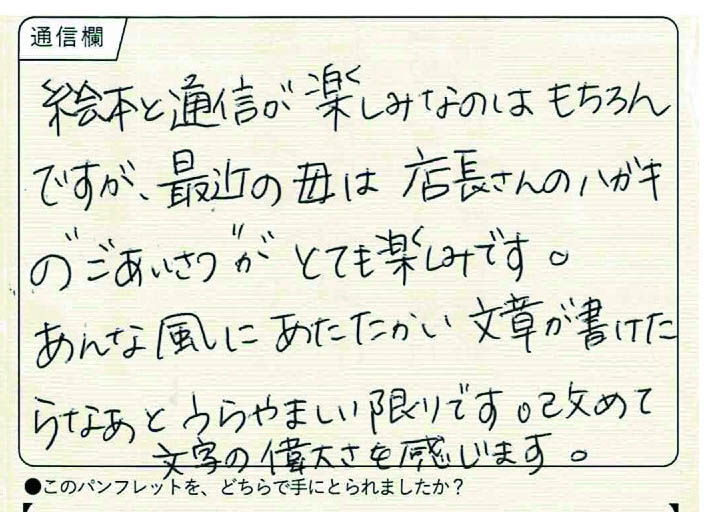 通信欄
絵本と通信が楽しみなのはもちろん
ですが、最近の母は店長さんのハガキ
の"ごあいさつ"がとても楽しみです。
あんな風にあたたかい文章が書けた
らなあとうらやましい限りです。改めて
文字の偉大さを感じます。
●このパンフレットを、どちらで手にとられましたか?